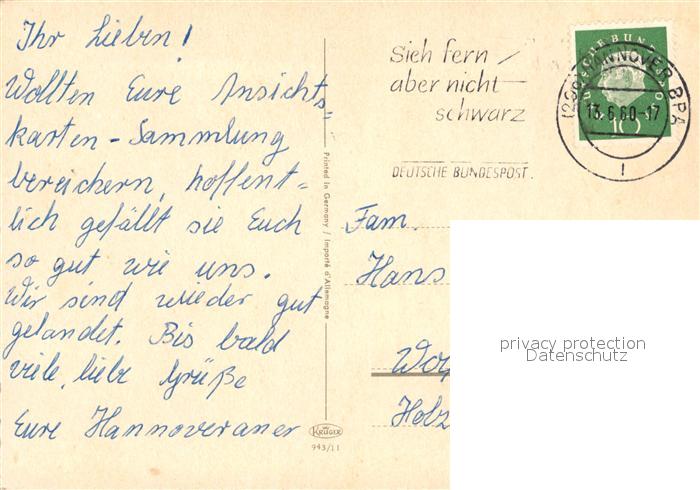 Ihr Lieben!
Wollten Eure Ansichts=
karten-Sammlung
bereichern, hoffent=
lich gefällt sie Euch
so gut wie uns.
Wir sind wieder gut
gelandet. Bis bald
viele, liebe Grüße
Eure Hannoveraner
Printed in Germany / Importé d'Allemagne
KRÜGER
943/11
Sieh fern
aber nicht
schwarz
DEUTSCHE BUNDESPOST.
HANNOVER BPA
13.6.60-17
10
Fam.
Hans
Holz
privacy protection
Datenschutz